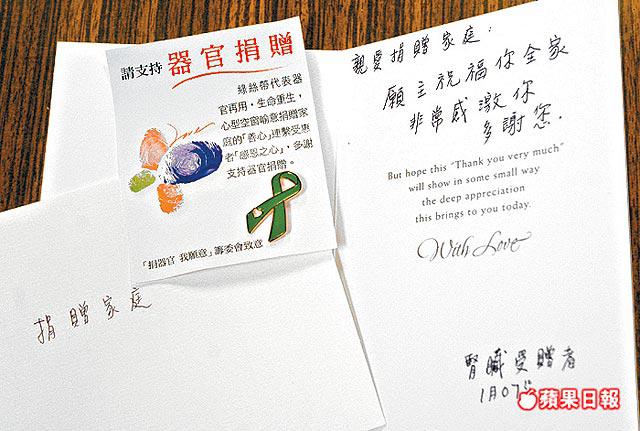 請支持 器官捐贈
綠絲帶代表器
官再用，生命重生，
心型空窗喻意捐贈家
庭的「善心」連繫受惠
者「感恩之心」，多謝
支持器官捐贈。
「捐器官 我願意」籌委會致意
捐贈家庭
親愛捐贈家庭：
願主祝福你全家
非常感激你
多謝您.
But hope this “Thank you very much”
will show in some small way
the deep appreciation
this brings to you today.
With Love
腎臟受贈者
1月07
蘋果日報